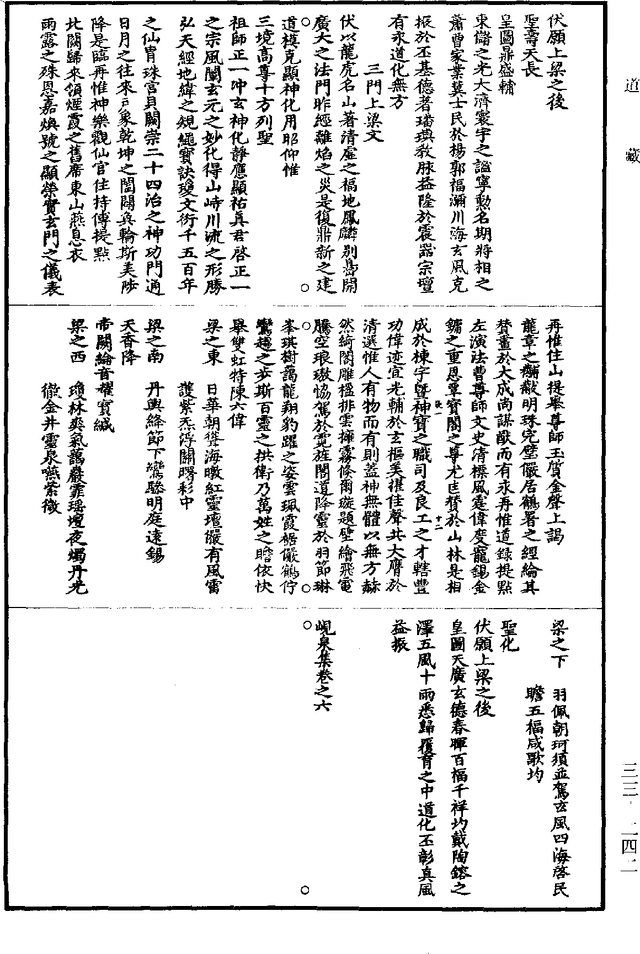 道藏
伏願上梁之後
聖壽天長
皇圖鼎盛輔
東儲之光大濟寰宇之謐寧勲名期將相之
蕭曹家業冀士民於楊郭福瀰川海玄風克
振於丕基德著璠璵敎脉益隆於震器宗壇
有永道化無方
三門上梁文
伏以龍虎名山著清虛之福地鳳麟别嶌開
廣大之法門昨經離焰之災是復鼎新之建
道模克顯神化用昭仰惟
三境高尊十方列聖
祖師正一冲玄神化靜應顯祐真君啓正一
之宗風闡玄元之妙化得山峙川流之形勝
弘天經地緯之規繩寶訣瓊文術千五百年
之仙胄珠宮貝闕崇二十四治之神功門通
日月之往來戸象乾坤之闔闢奐輪斯美陟
降是臨再惟神樂觀仙官住持傅提點
北闕歸來領煙霞之舊席東山燕息衣
雨露之殊恩嘉煥號之顯榮實玄門之儀表
再惟住山提舉尊師玉質金聲上謁
龍章之黼黻明珠完璧儼居鶴署之經綸其
賛畫於大成尚謀猷而有永再惟道錄提點
左演法曹尊師文史清標風庭偉度寵錫金
鏞之重恩覃寶閣之尊尤臣賛於山林是相
成於棟宇曁神寶之職司及良工之才轄豐
功偉迹宜光輔於玄樞美襟佳聲共大膺於
清選惟人有物而有則蓋神無體以無方赫
然綺閣雕楹排雲擁霧條爾璇題壁繪飛電
騰空琅璈恊駕於霓旌閣道降靈於羽節琳
峯琪樹藹龍翔豹躍之姿雲珮霞裾儼鶴佇
鸞趨之歩斯百靈之拱衛乃萬姓之瞻依快
舉雙虹特陳六偉
梁之東　日華朝聳海暾紅靈壇儼有風雷
護紫炁浮開曙彩中
梁之南　丹輿絳節下鸞驂明庭遠錫
天香降
帝闕綸音耀寶緘
梁之西　瓊林爽氣藹巖霏瑶壇夜燭丹光
徹金井靈泉嚥紫微
梁之下　羽佩朝珂須並駕玄風四海啓民
瞻五福咸歌均
聖化
伏願上梁之後
皇圖天廣玄德春暉百福千祥均戴陶鎔之
澤五風十雨悉歸覆育之中道化丕彰真風
益振
峴泉集卷之六
三三·二四二